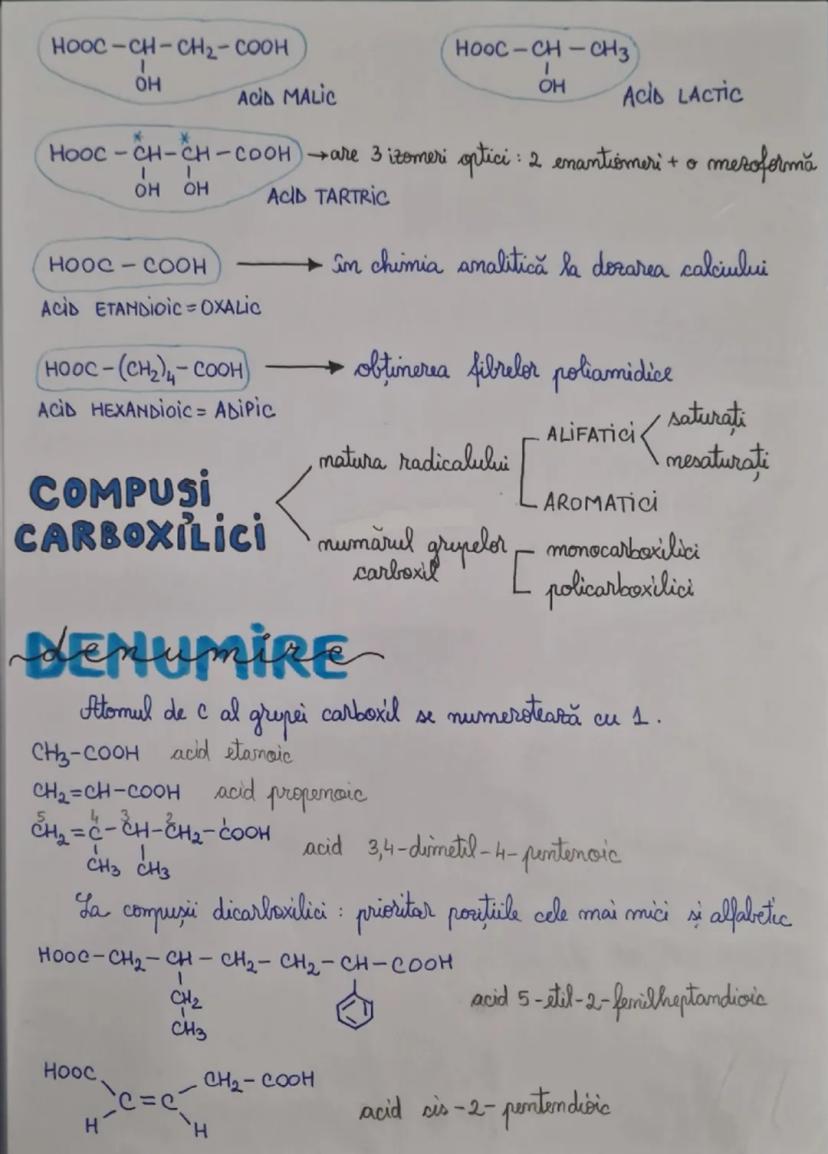 HOOC-CH-CH₂-COOH
OH
ACID MALIC
HOOC-CH-CH₃
OH
ACID LACTIC
HOOC-*CH-*CH-COOH → are 3 izomeri optici: 2 enantiomeri + o mezoformă
OH OH
ACID TARTRIC
HOOC-COOH → în chimia analitică la dozarea calciului
ACID ETANDIOIC = OXALIC
HOOC-(CH₂)₄-COOH → obținerea fibrelor poliamidice
ACID HEXANDIOIC = ADIPIC
COMPUȘI
CARBOXILICI
natura radicalului
ALIFATICI
saturați
nesaturați
AROMATICI
numărul grupelor
carboxil
monocarboxilici
policarboxilici
DENUMIRE
denumire
Atomul de C al grupei carboxil se numerotează cu 1.
CH₃-COOH acid etanoic
CH₂=CH-COOH acid propenoic
5 4 3 2 1
CH₂=C-CH-CH₂-COOH acid 3,4-dimetil-4-pentenoic
CH₃ CH₃
La compușii dicarboxilici: prioritar pozițiile cele mai mici și alfabetic
HOOC-CH₂-CH-CH₂-CH₂-CH-COOH
CH₂
CH₃
acid 5-etil-2-fenilheptandioic
HOOC CH₂-COOH
C=C
H H
acid cis-2-pentendioic